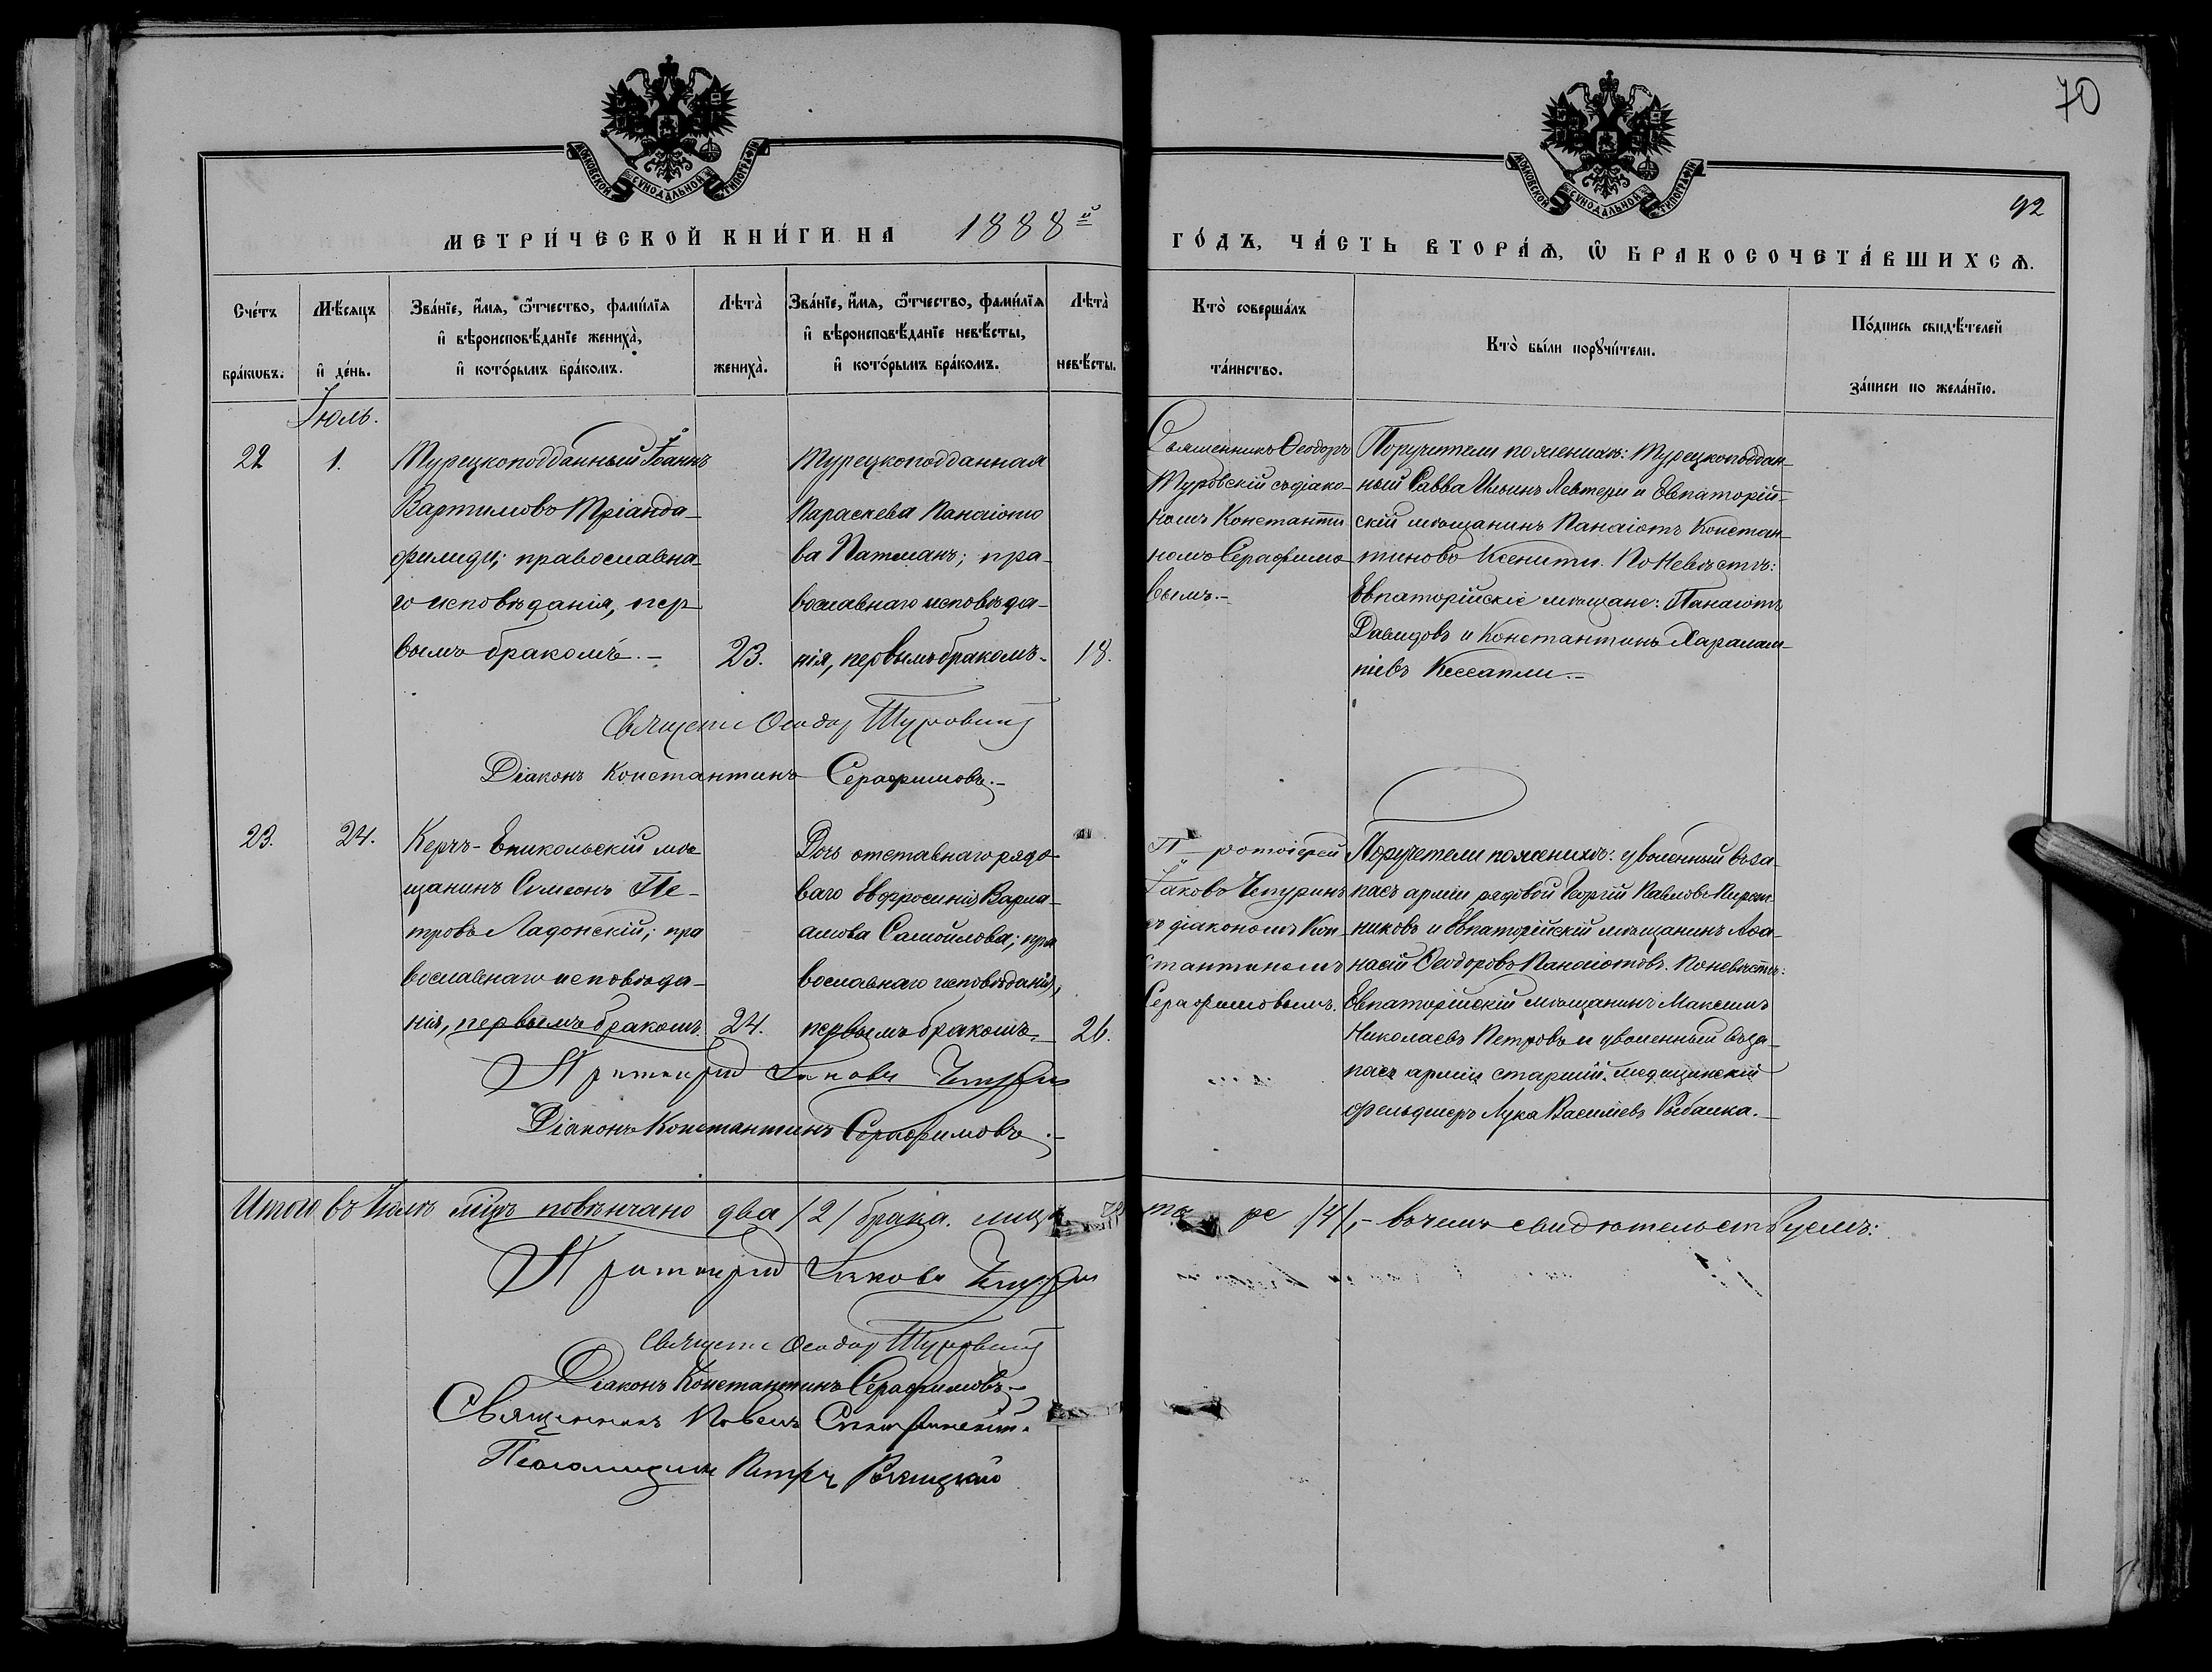 70
МОСКОВСКОЙ СѴНОДАЛЬНОЙ ТИПОГРАФІИ
МОСКОВСКОЙ СѴНОДАЛЬНОЙ ТИПОГРАФІИ
92
МЕТРИ́ЧЕСКОЙ КНИ́ГИ НА 1888й ГО́ДЪ, ЧА́СТЬ ВТОРА́Ѧ, Ѽ БРАКОСОЧЕТА́ВШИХСѦ.
Сче́тъ бра́кѡвъ.
Мѣ́сяцъ и҆ де́нь.
Зва́нїе, и҆́мѧ, ѻ҆́тчество, фами́лїѧ
и҆ вѣроисповѣ́данїе жениха̀,
и҆ кото́рымъ бра́комъ.
Лѣта̀ жениха̀.
Зва́нїе, и҆́мѧ, ѻ҆́тчество, фами́лїѧ
и҆ вѣроисповѣ́данїе невѣ́сты,
и҆ кото́рымъ бра́комъ.
Лѣта̀ невѣ́сты.
Кто̀ соверша́лъ
та́инство.
Кто̀ бы́ли порꙋчи́тели.
По́дпись свидѣ́телей
за́писи по жела́нїю.
Іюль.
22
1.
Турецкоподданный Іоаннъ
Вартимовъ Тріанда-
филиди; православна-
го исповѣданія, пер
вымъ бракомъ.-
23.
Турецкоподданная
Параскева Панаіото
ва Патманъ; пра-
вославнаго исповѣда-
нія, первымъ бракомъ.-
18.
Священникъ Ѳеодоръ
Туровскій съ діако-
номъ Константи
номъ Серафимо
вымъ.-
Поручители по женихѣ: Турецкоподдан-
ный Савва Ильинъ Левтери и Евпаторій-
скій мѣщанинъ Панаіотъ Констан-
тиновъ Ксенити. По Невѣстѣ:
Евпаторійскіе мѣщане: Панаіотъ
Давидовъ и Константинъ Харалам-
піевъ Кессапли.-
Священ Ѳеодор Туровский
Діаконъ Константинъ Серафимовъ.-
23.
24.
Керчь-Еникольскій мѣ
щанинъ Симеонъ Пе-
тровъ Ладонскій; пра
вославнаго исповѣда-
нія, первымъ бракомъ.
24.
Дочь отставнаго рядо-
ваго Евфросинія Варла-
амова Самойлова; пра
вославнаго исповѣданія,
первымъ бракомъ.-
26.
Протоіерей
Іаковъ Чепуринъ
съ діакономъ Кон-
стантиномъ
Серафимовымъ.
Поручетели по женихѣ: уволенный въ за-
пасъ арміи рядовой Георгій Павловъ
никовъ и Евпаторійскій мѣщанинъ Аѳа-
насій Ѳеодоровъ Панаіотовъ. По невѣстѣ:
Евпаторійскій мѣщанинъ Максимъ
Николаевъ Петровъ и уволенный въ за-
пасъ арміи старшій медицинскій
фельдшеръ Лука Василіевъ Рыбалка.-
Протоіерей Іаковъ Чепурин
Діаконъ Константинъ Серафимовъ.-
Итого въ Іюлѣ мцѣ повѣнчано два /2/ брака. лицъ четыре /4/,- въ чемъ свидѣтельствуемъ:
Протоіерей Іаковъ Чепурин
Священ Ѳеодор Туровский
Діаконъ Константинъ Серафимовъ.-
Священникъ Павелъ
Псаломщикъ Петръ